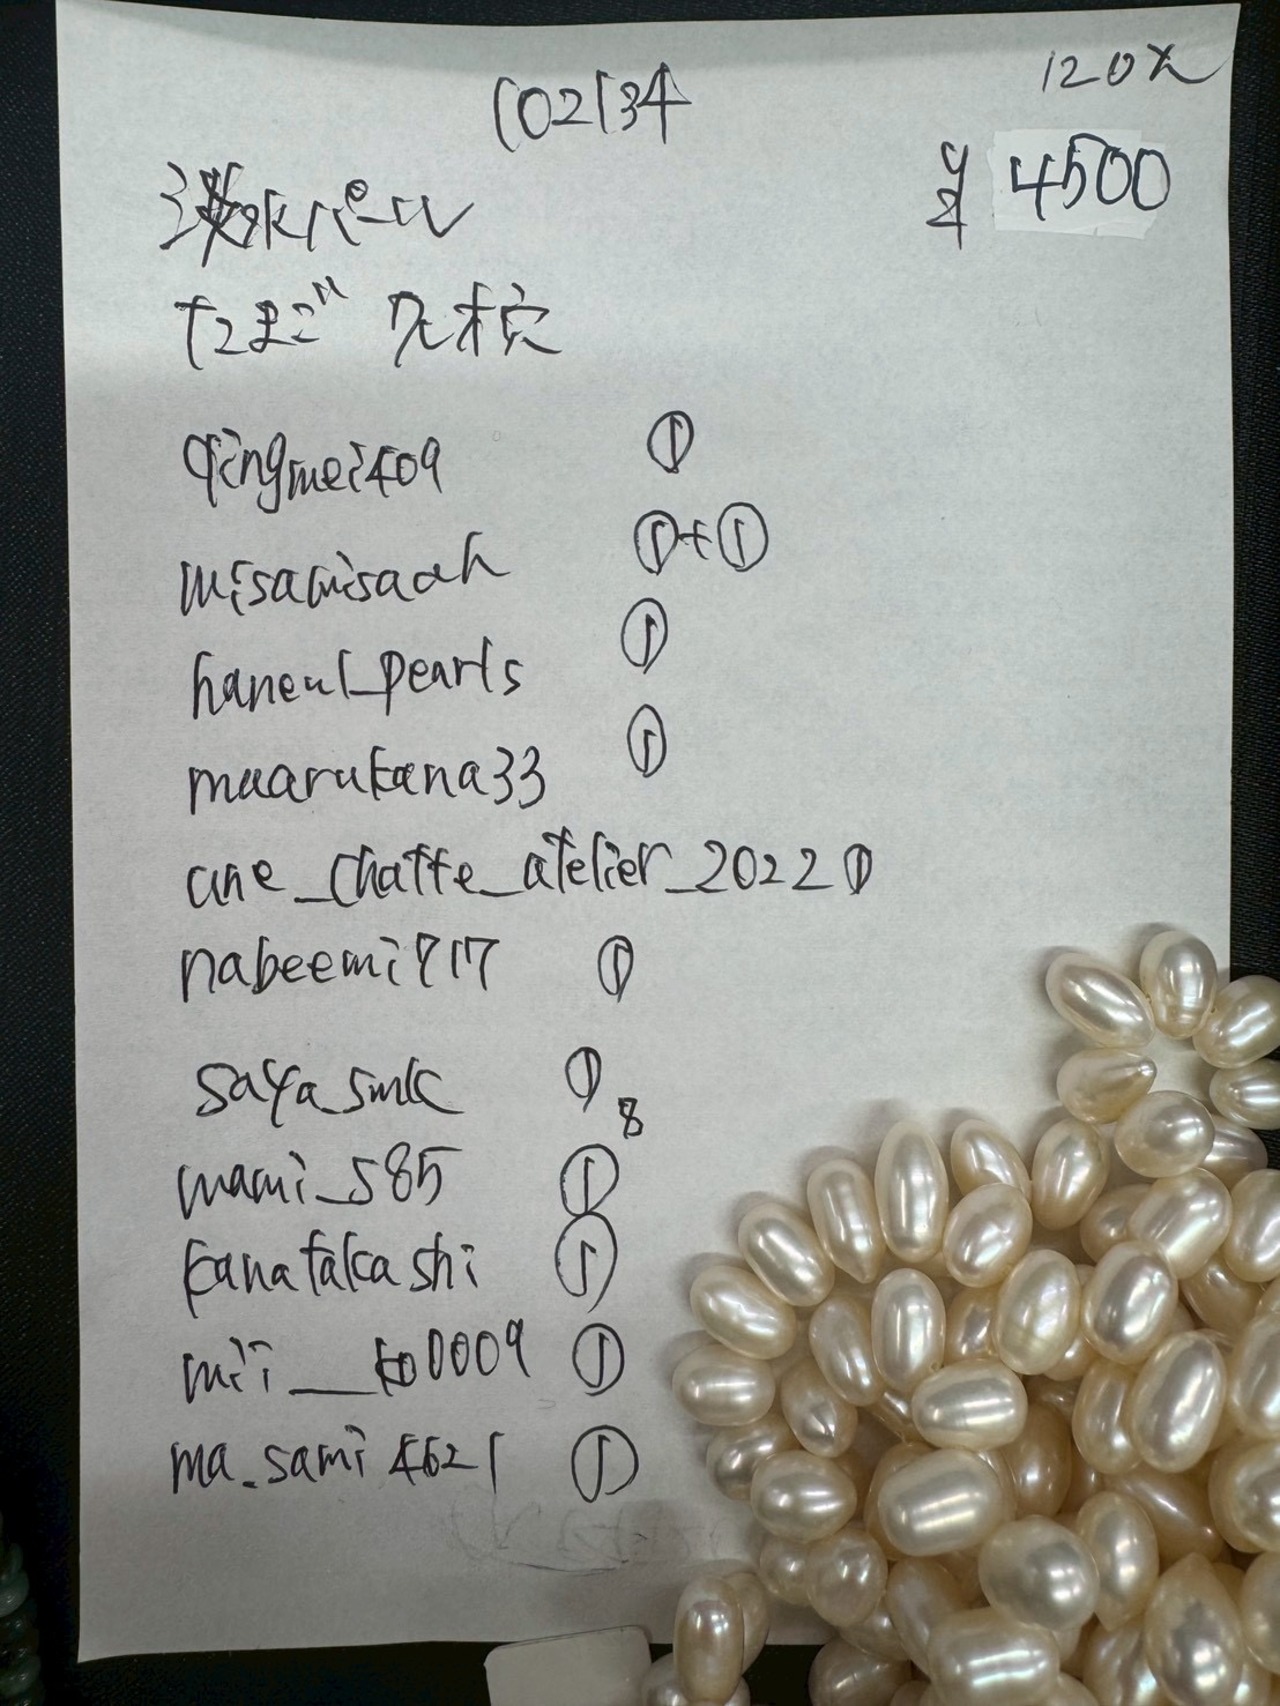 102134
120入
¥ 4500
淡水パール
たまご 無核
qingmei409 ①
misamisaoh ①+①
haneul_pearls ①
maarukana33 ①
une_chatte_atelier_2022 ①
nabeemi717 ①
saya_smk ① 8
mami_s85 ①
kanatakashi ①
mii__ko0009 ①
ma.sami4621 ①